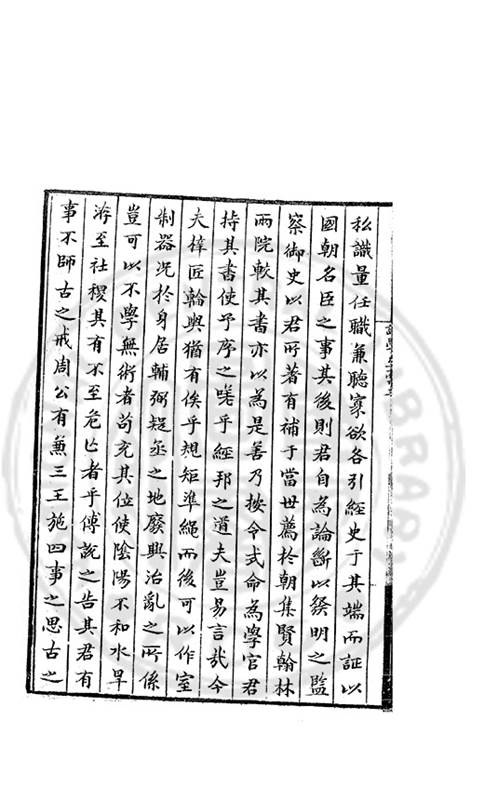 私識量任職兼聽寡欲各引經史于其端而証以
國朝名臣之事其後則君自為論斷以發明之監
察御史以君所著有補于當世薦於朝集賢翰林
兩院較其書亦以為是善乃按令式命為學官君
持其書使予序之嗟乎經邦之道夫豈易言哉今
夫梓匠輪輿猶有俟乎規矩準繩而後可以作室
制器况於身居輔弼疑丞之地廢興治亂之所係
豈可以不學無術者苟充其位使陰陽不和水旱
洊至社稷其有不至危亡者乎傅說之告其君有
事不師古之戒周公有兼三王施四事之思古之